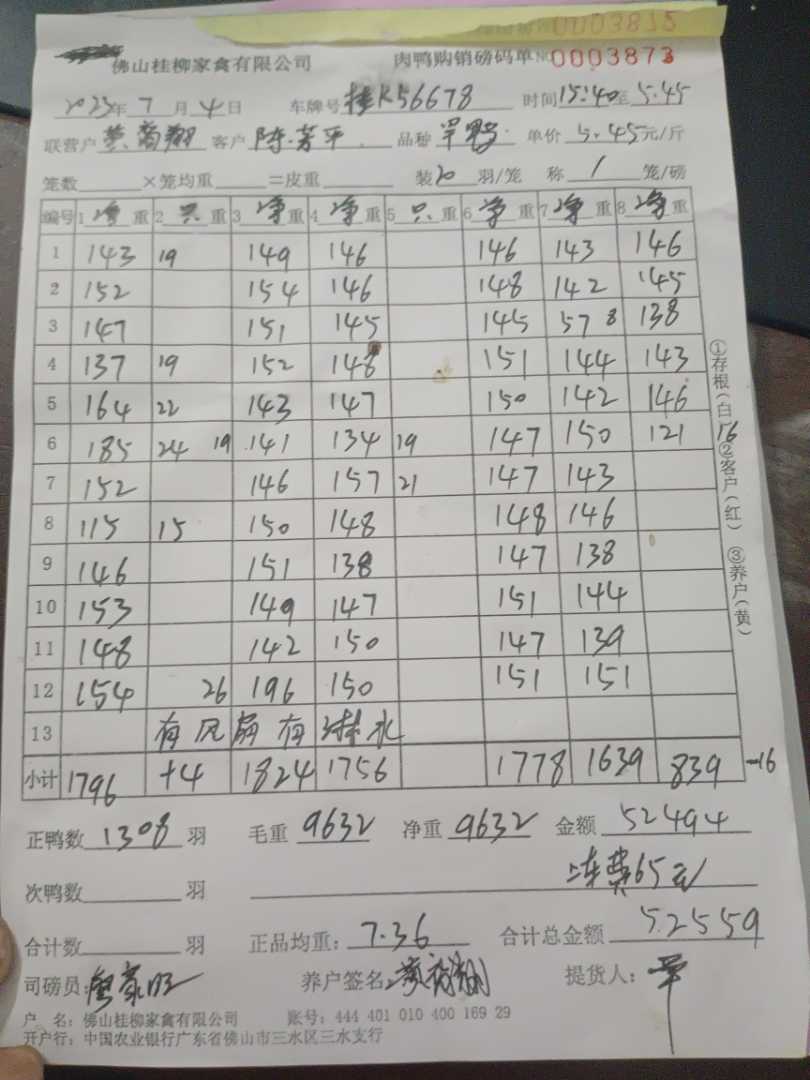 0003872
佛山桂柳家禽有限公司 肉鸭购销磅码单 № 0003873
2023年 7 月 4 日 车牌号 桂K56678 时间 15:40 至 5.45
联营户 客户 陈芳平 品种 单价 5.45 元/斤
笼数 ×笼均重 =皮重 装 20 羽/笼 称 1 笼/磅
编号 1 净 重 2 只 重 3 净 重 4 净 重 5 只 重 6 净 重 7 净 重 8 净 重
1 143 19 149 146 146 143 146
2 152 154 146 148 142 145
3 147 151 145 145 57 8 138
4 137 19 152 148 151 144 143
5 164 22 143 147 150 142 146
6 185 24 19 141 134 19 147 150 121 16
7 152 146 157 21 147 143
8 115 15 150 148 148 146
9 146 151 138 147 138
10 153 149 147 151 144
11 148 142 150 147 139
12 154 26 196 150 151 151
13 有风扇有淋水
小计 1796 +4 1824 1756 1778 1639 839 -16
①存根(白) ②客户(红) ③养户(黄)
正鸭数 1308 羽 毛重 9632 净重 9632 金额 52494
次鸭数 羽 冻费65元
合计数 羽 正品均重: 7.36 合计总金额 52559
司磅员: 养户签名: 提货人:
户 名: 佛山桂柳家禽有限公司 账号: 444 401 010 400 169 29
开户行: 中国农业银行广东省佛山市三水区三水支行